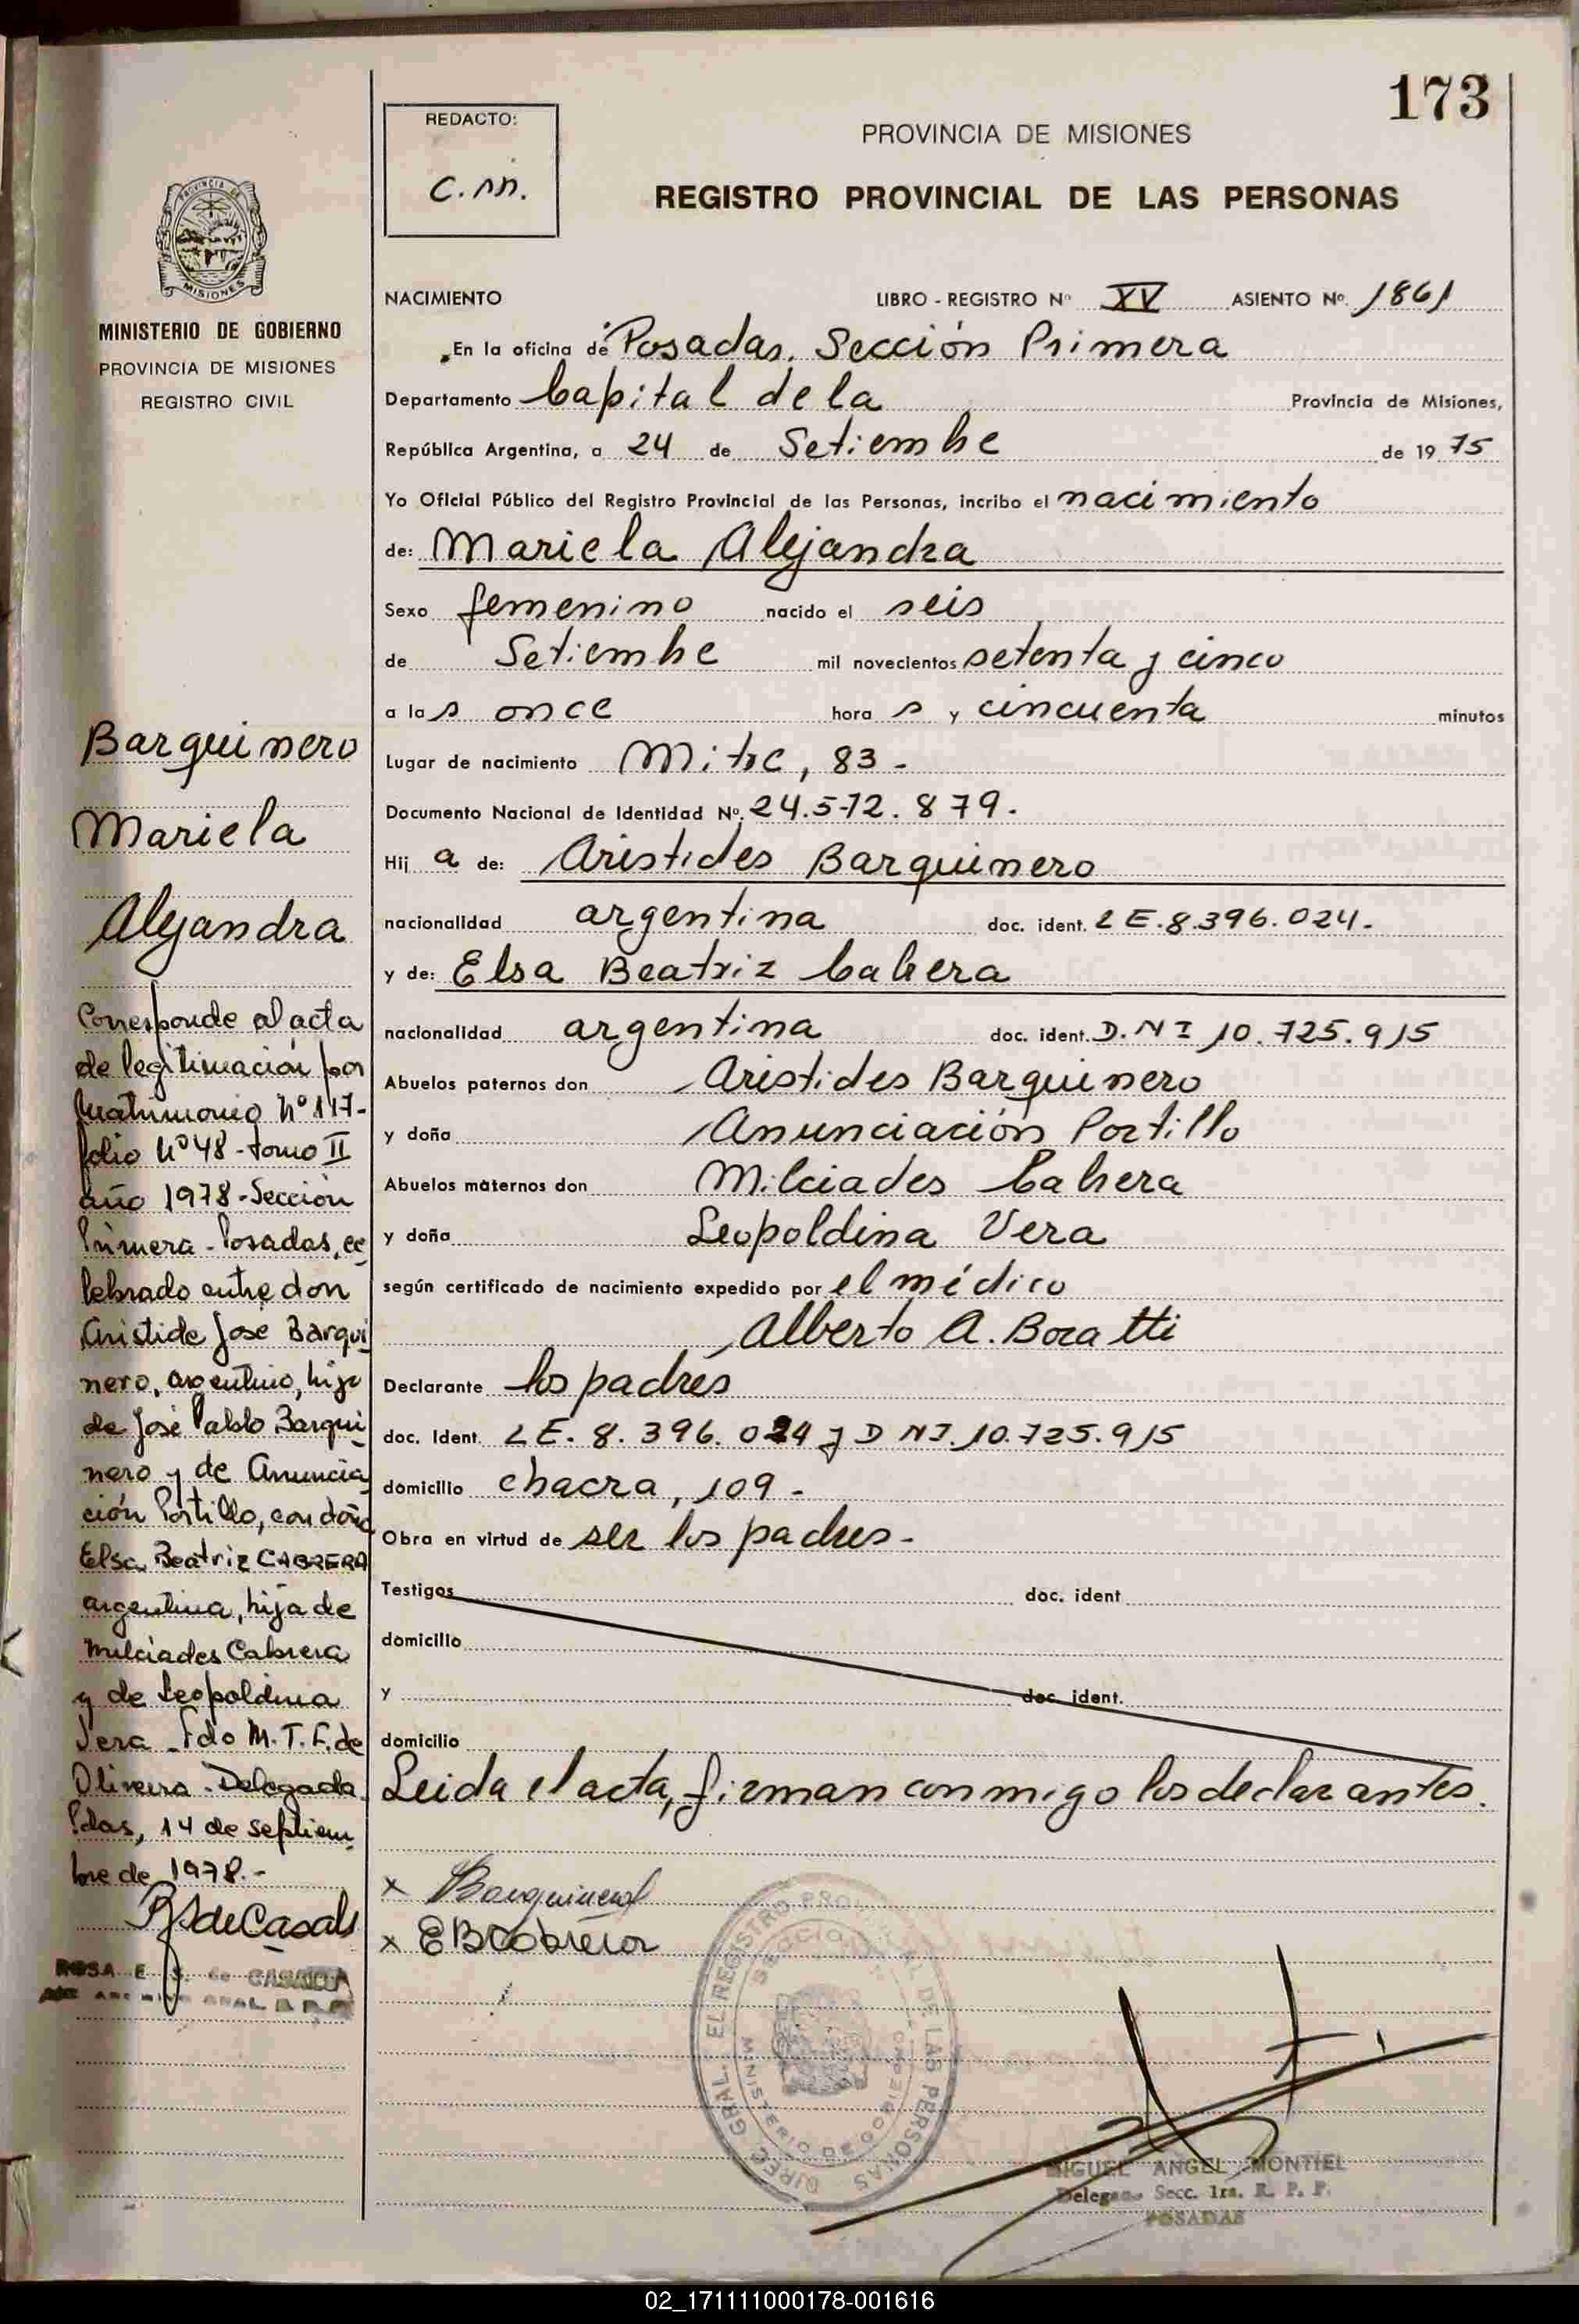 173
REDACTO:
C.M.
PROVINCIA DE MISIONES
REGISTRO PROVINCIAL DE LAS PERSONAS
PROVINCIA DE
MISIONES
MINISTERIO DE GOBIERNO
PROVINCIA DE MISIONES
REGISTRO CIVIL
NACIMIENTO LIBRO - REGISTRO Nº XV ASIENTO Nº. 1861
En la oficina de Posadas. Sección Primera
Departamento Capital de la Provincia de Misiones,
República Argentina, a 24 de Setiembre de 1975
Yo Oficial Público del Registro Provincial de las Personas, incribo el nacimiento
de: Mariela Alejandra
Sexo femenino nacido el seis
de Setiembre mil novecientos setenta y cinco
a las once horas y cincuenta minutos
Lugar de nacimiento Mitre, 83 -
Documento Nacional de Identidad Nº. 24.572.879.
Hija de: Aristides Barquinero
nacionalidad argentina doc. ident. LE.8.396.024.
y de: Elsa Beatriz Cabrera
nacionalidad argentina doc. ident. D.NI 10.725.915
Abuelos paternos don Aristides Barquinero
y doña Anunciación Portillo
Abuelos maternos don Milciades Cabrera
y doña Leopoldina Vera
según certificado de nacimiento expedido por el médico
Alberto A. Boratti
Declarante los padres
doc. Ident. LE. 8.396.024 y D NI.10.725.915
domicilio chacra, 109 -
Obra en virtud de ser los padres -
Testigos doc. ident
domicilio
y doc. ident.
domicilio
Leida el acta, firman conmigo los declarantes.
x Barquinero
x EBCabrera
Barquinero
Mariela
Alejandra
Corresponde al acta
de legitimación por
Matrimonio Nº 117-
folio Nº 48 - tomo II
año 1978 - Sección
Primera - Posadas, ce
lebrado entre don
Aristide José Barqui
nero, argentino, hijo
de José Pablo Barqui
nero y de Anuncia
ción Portillo, con doña
Elsa Beatriz CABRERA
argentina, hija de
Milciades Cabrera
y de Leopoldina
Vera - Fdo M. T. F. de
Oliveira - Delegada
Pdas, 14 de septiem
bre de 1978.-
RSdeCasals
ROSA E. S. de
DIREC. GRAL. EL REGISTRO PROV. DE LAS PERSONAS
MINISTERIO DE GOBIERNO
MIGUEL ANGEL MONTIEL
Delegado Secc. 1ra. R. P. P.
POSADAS
02_171111000178-001616